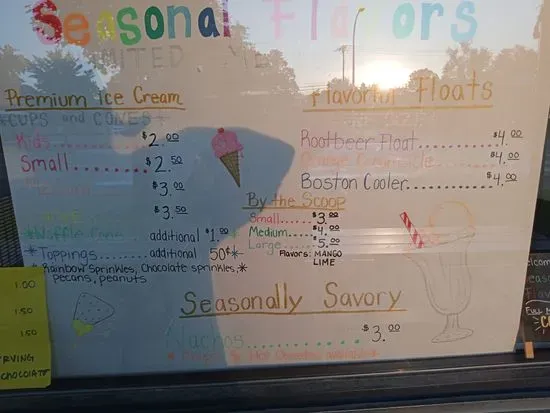 Seasonal Flavors
LIMITED TIME
Premium Ice Cream
*CUPS and CONES*
Kids.......... $2.00
Small.......... $2.50
$3.00
$3.50
*Waffle Cone additional $1.00
*Toppings...... additional 50¢*
*Rainbow Sprinkles, Chocolate sprinkles,*
pecans, peanuts
Flavorful Floats
Rootbeer Float......... $4.00
$4.00
Boston Cooler........... $4.00
By the Scoop
Small...... $3.00
Medium..... $4.00
Large...... $5.00
Flavors: MANGO
LIME
Seasonally Savory
Nachos.................... $3.00
1.00
1.50
1.50
CHOCOLATE